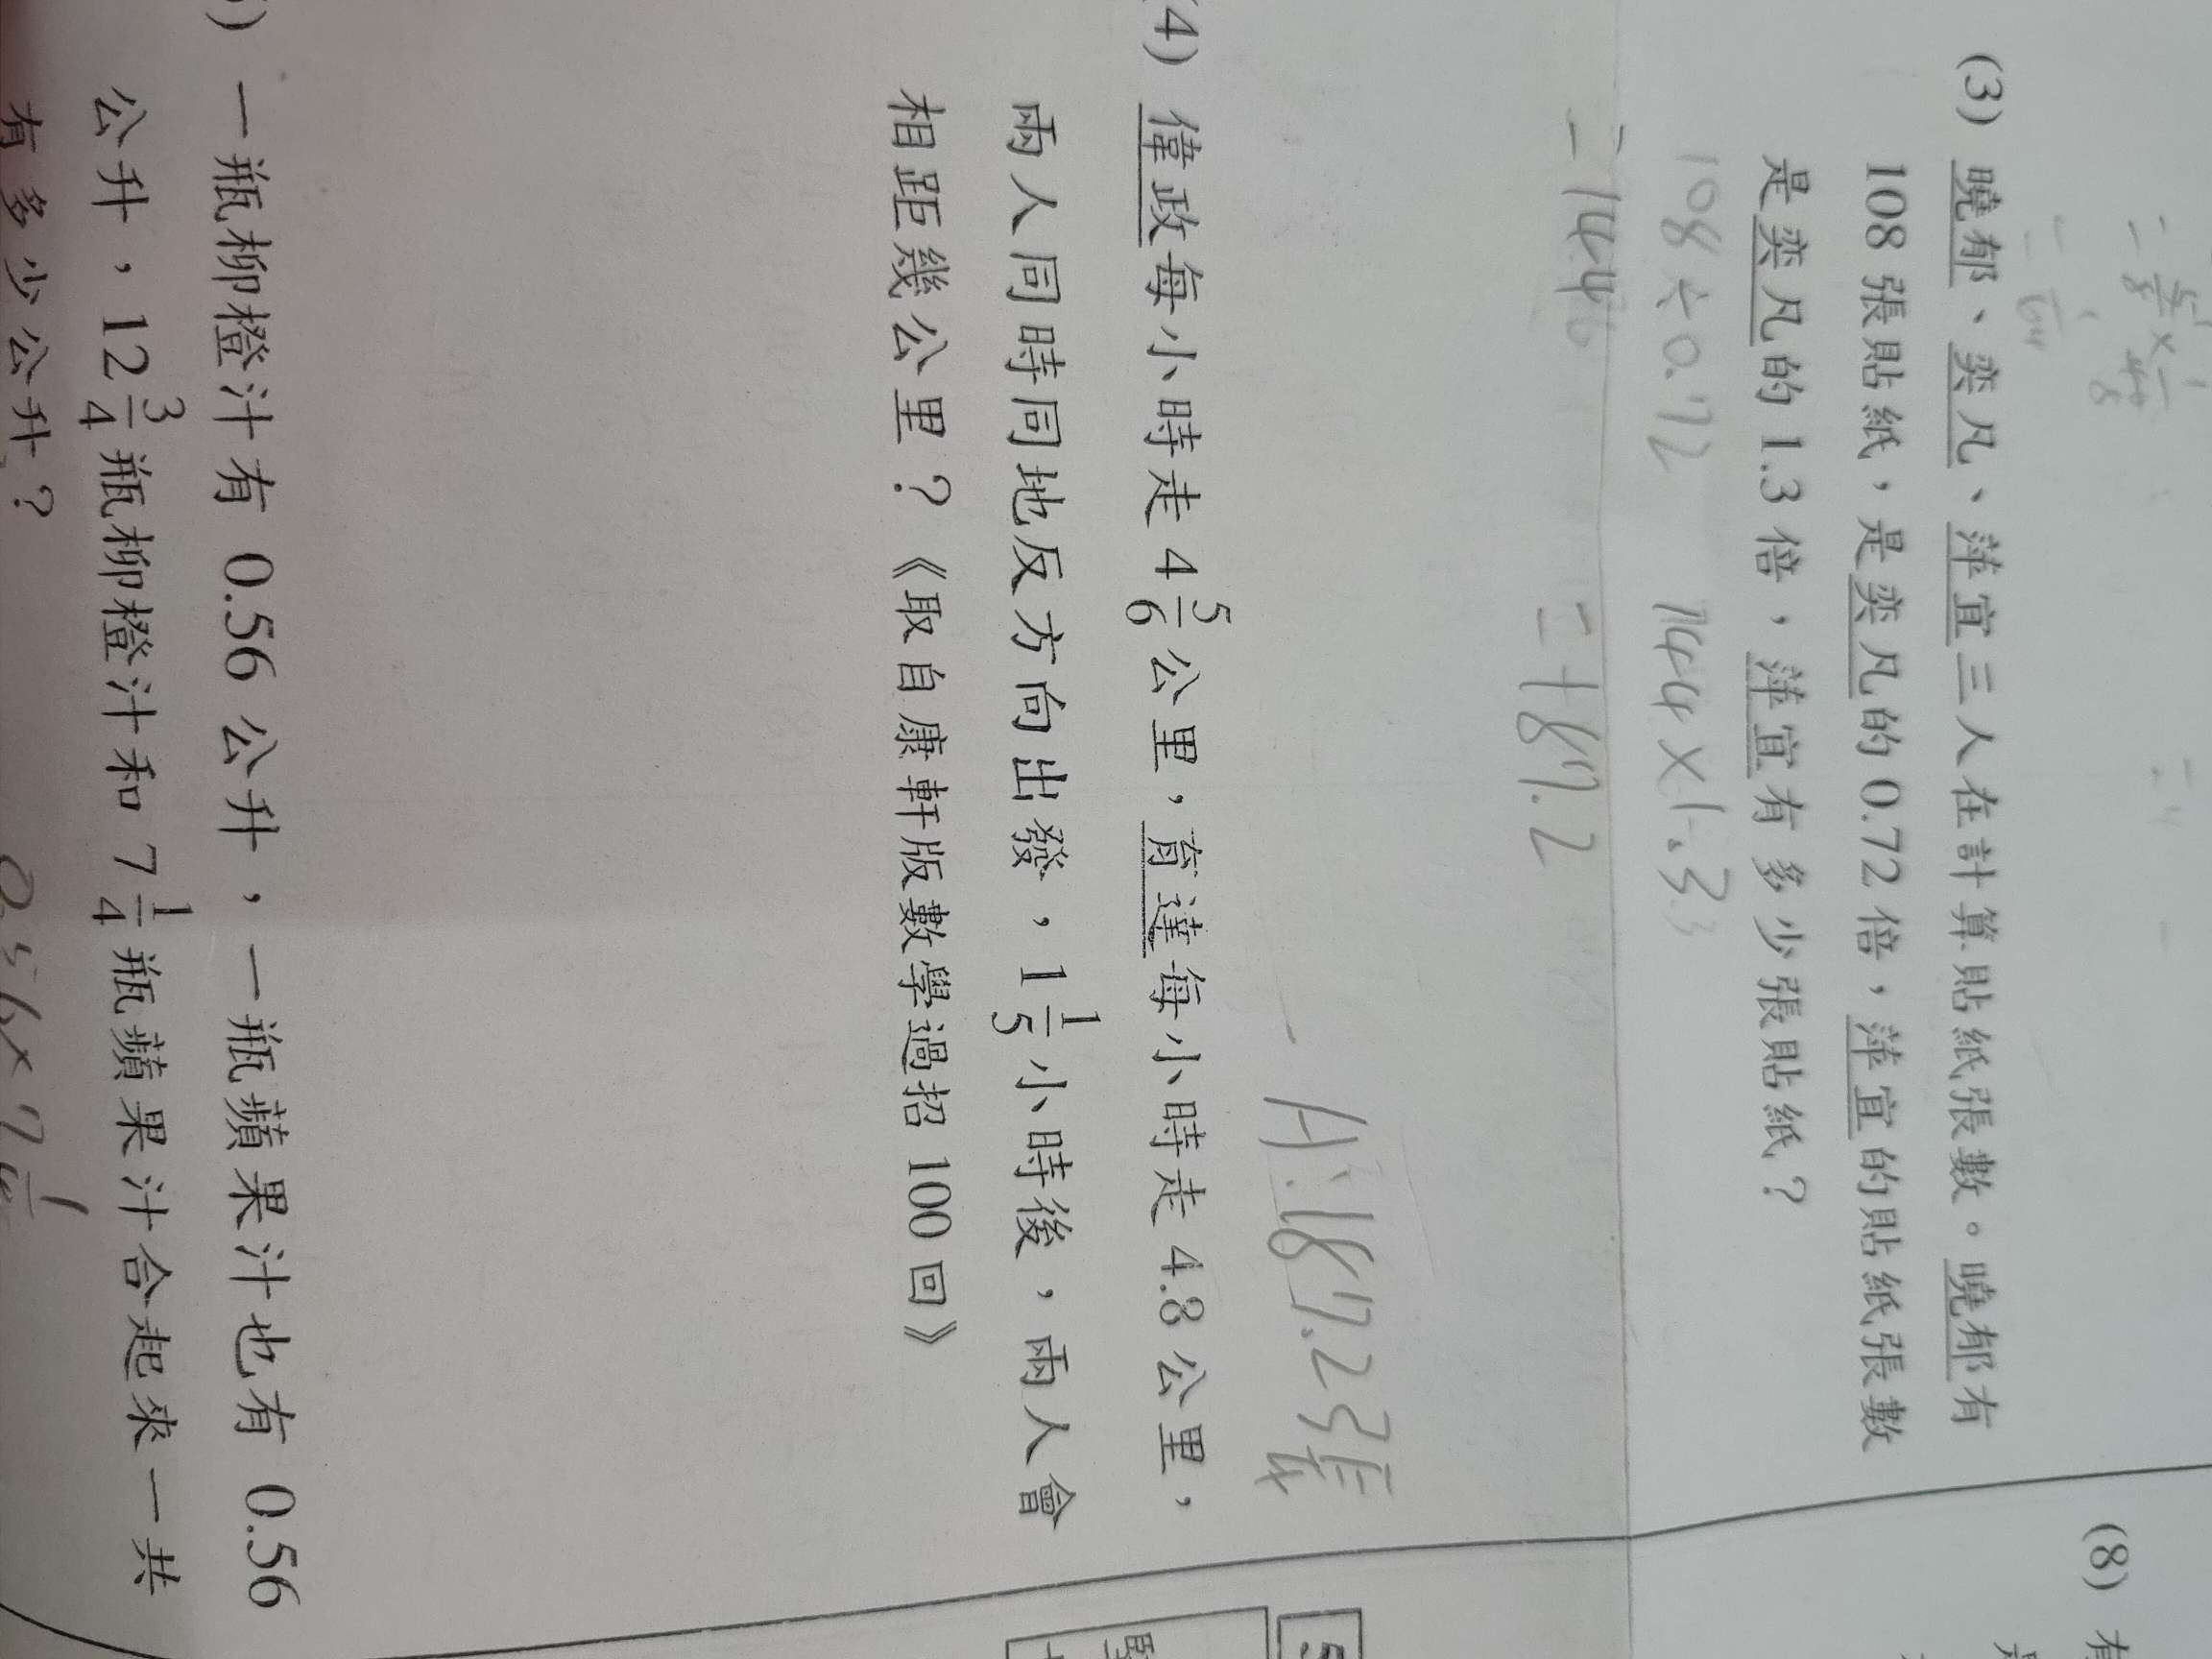 (3) 曉郁、奕凡、萍宜三人在計算貼紙張數。曉郁有
108 張貼紙，是奕凡的 0.72 倍，萍宜的貼紙張數
是奕凡的 1.3 倍，萍宜有多少張貼紙？
108÷0.72
144×1.3
=144
=187.2
A:187.2張
(4) 偉政每小時走 4 5/6 公里，育達每小時走 4.8 公里，
兩人同時同地反方向出發，1 1/5 小時後，兩人會
相距幾公里？《取自康軒版數學過招 100 回》
一瓶柳橙汁有 0.56 公升，一瓶蘋果汁也有 0.56
公升，12 3/4 瓶柳橙汁和 7 1/4 瓶蘋果汁合起來一共
有多少公升？
0.56×7 1/4
(8) 有